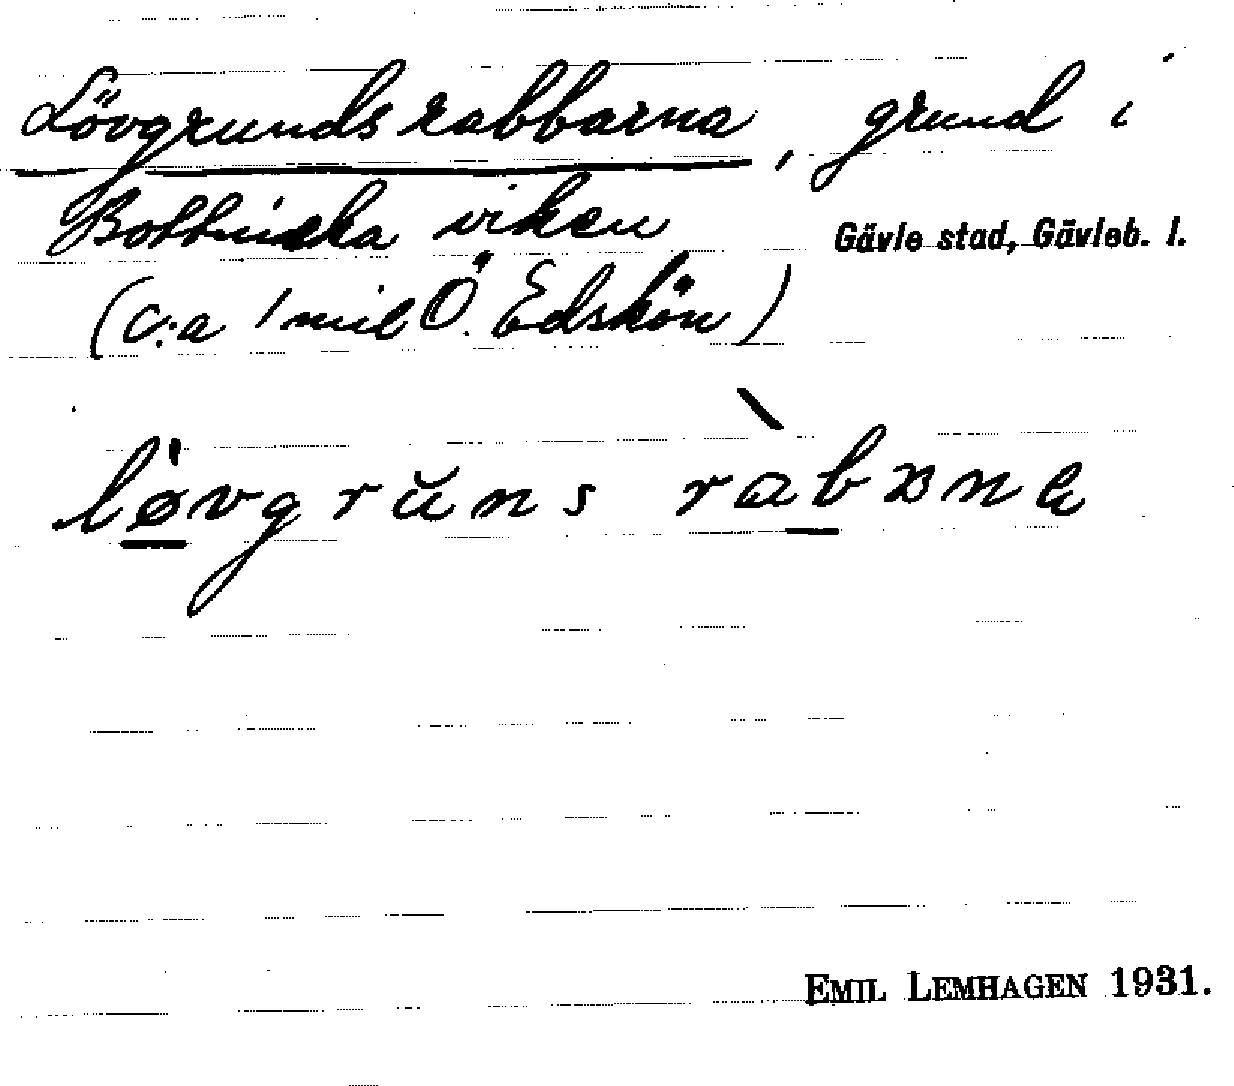 Lövgrundsrabbarna, grund i
Bottniska viken Gävle stad, Gävleb. l.
(c:a 1 mil Ö. Edskön)
løvgrŭns ràbɒna
EMIL LEMHAGEN 1931.